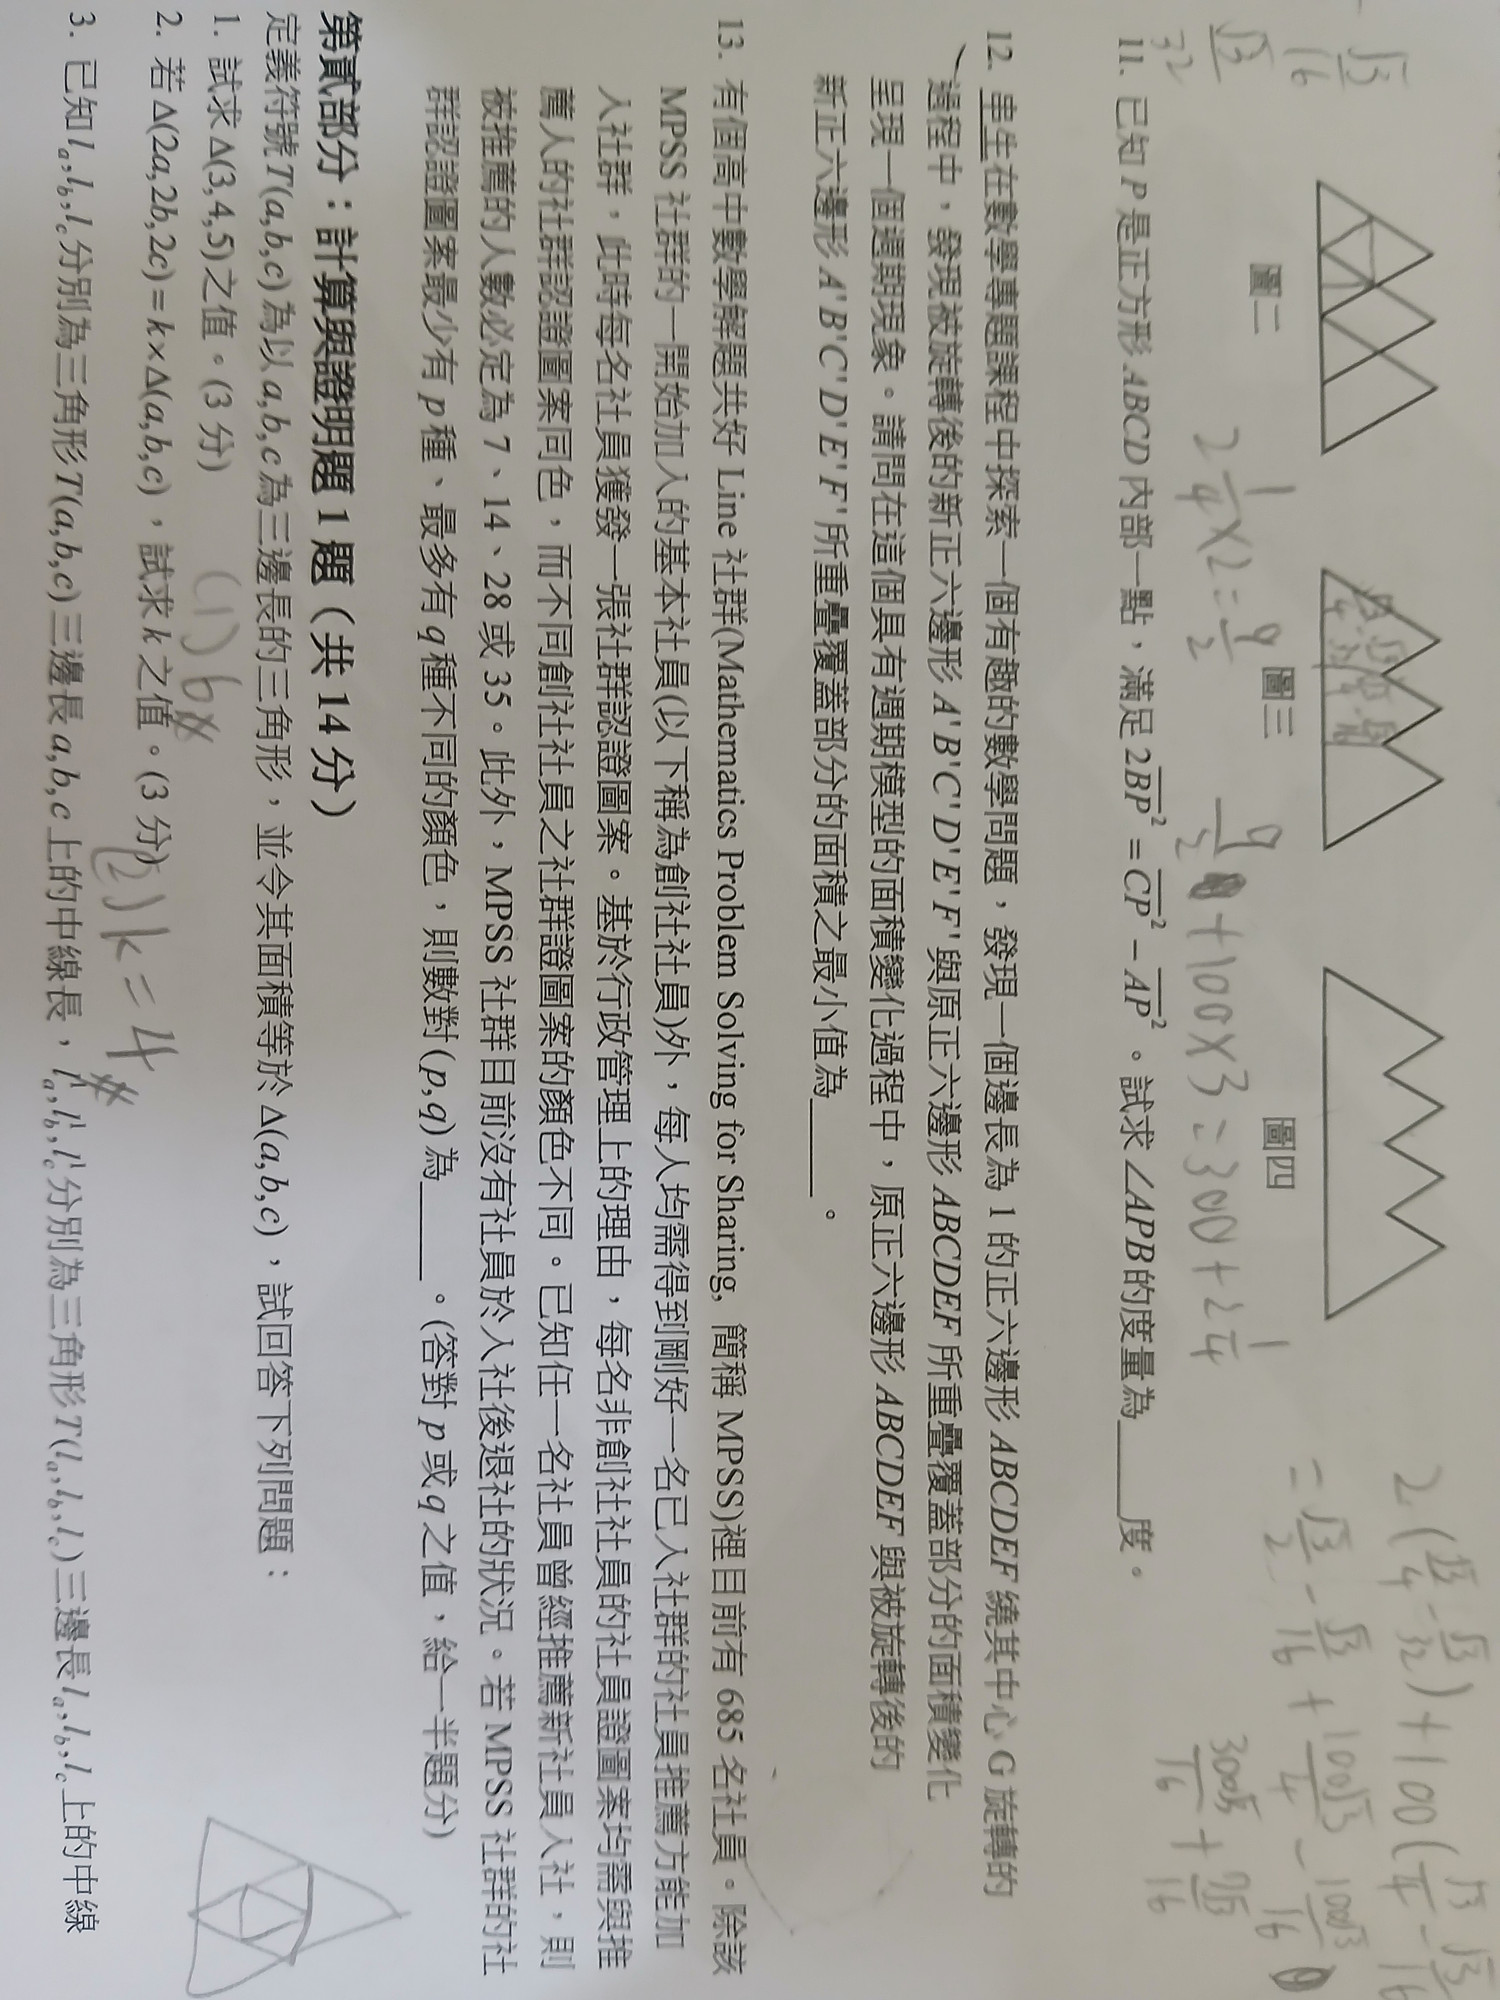 圖二 圖三 圖四
11. 已知 P 是正方形 ABCD 內部一點，滿足 2BP² = CP² − AP²。試求 ∠APB 的度量為______度。
12. 串生在數學專題課程中探索一個有趣的數學問題，發現一個邊長為 1 的正六邊形 ABCDEF 繞其中心 G 旋轉的
過程中，發現被旋轉後的新正六邊形 A'B'C'D'E'F' 與原正六邊形 ABCDEF 所重疊覆蓋部分的面積變化
呈現一個週期現象。請問在這個具有週期模型的面積變化過程中，原正六邊形 ABCDEF 與被旋轉後的
新正六邊形 A'B'C'D'E'F' 所重疊覆蓋部分的面積之最小值為______。
13. 有個高中數學解題共好 Line 社群(Mathematics Problem Solving for Sharing, 簡稱 MPSS)裡目前有 685 名社員。除該
MPSS 社群的一開始加入的基本社員(以下稱為創社社員)外，每人均需得到剛好一名已入社群的社員推薦方能加
入社群，此時每名社員獲發一張社群認證圖案。基於行政管理上的理由，每名非創社社員的社員證圖案均需與推
薦人的社群認證圖案同色，而不同創社社員之社群證圖案的顏色不同。已知任一名社員曾經推薦新社員入社，則
被推薦的人數必定為 7、14、28 或 35。此外，MPSS 社群目前沒有社員於入社後退社的狀況。若 MPSS 社群的社
群認證圖案最少有 p 種、最多有 q 種不同的顏色，則數對 (p,q) 為______。(答對 p 或 q 之值，給一半題分)
第貳部分：計算與證明題 1 題（共 14 分）
定義符號 T(a,b,c) 為以 a,b,c 為三邊長的三角形，並令其面積等於 Δ(a,b,c)，試回答下列問題：
1. 試求 Δ(3,4,5) 之值。(3 分)
(1) 6#
2. 若 Δ(2a,2b,2c) = k×Δ(a,b,c)，試求 k 之值。(3 分)
(2) k = 4#
3. 已知 lₐ,l_b,l_c 分別為三角形 T(a,b,c) 三邊長 a,b,c 上的中線長，l¹ₐ,l¹_b,l¹_c 分別為三角形 T(lₐ,l_b,l_c) 三邊長 lₐ,l_b,l_c 上的中線